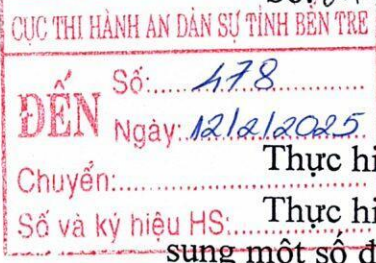 CỤC THI HÀNH ÁN DÂN SỰ TỈNH BẾN TRE
ĐẾN
Số:.....478
Ngày: 12/2/2025
Thực hi
Chuyển:
Số và ký hiệu HS:
Thực hi
sung một số đ